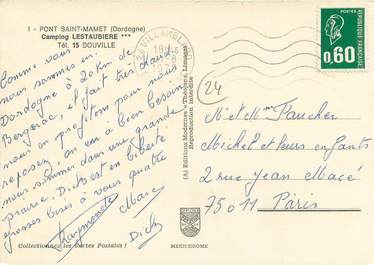 1 - PONT SAINT-MAMET (Dordogne)
Camping LESTAUBIERE ***
Tél. 15 DOUVILLE
Comme vous
nous sommes en
Dordogne à 20 km de
Bergerac, il fait très chaud
nous en profitons pour nous
reposer, on en a bien besoin
nous sommes dans une grande
prairie. Dick est en liberté
grosses bises à vous quatre
Raymonde Marc
Dick
Collectionnez les Cartes Postales !
(A) Editions Modernes
Reproduction interdite
MEXICHROME
24 VILLAMBLARD
18H45
1976
POSTES
0,60
REPUBLIQUE FRANÇAISE
24
M et Mme Faucher
Michel et leurs enfants
2 rue Jean Macé
75011 Paris